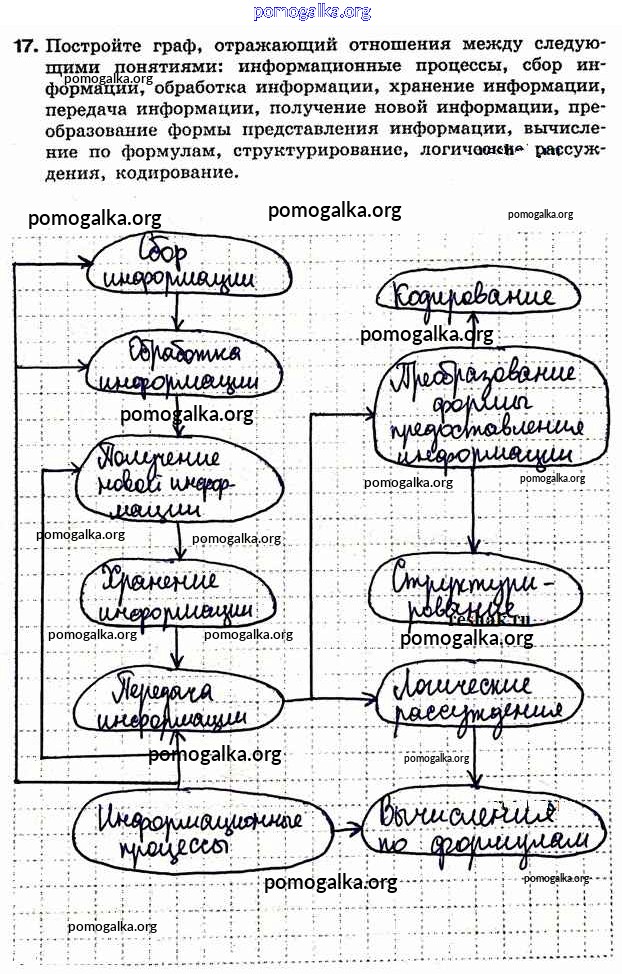 pomogalka.org
17. Постройте граф, отражающий отношения между следую-
щими понятиями: информационные процессы, сбор ин-
pomogalka.org
формации, обработка информации, хранение информации,
передача информации, получение новой информации, пре-
образование формы представления информации, вычисле-
ние по формулам, структурирование, логические рассуж-
дения, кодирование.
pomogalka.org pomogalka.org pomogalka.org
Сбор
информации
Кодирование
pomogalka.org
Обработка
информации
pomogalka.org
Преобразование
формы
предоставления
информации
pomogalka.org pomogalka.org
Получение
новой инфор-
мации
pomogalka.org pomogalka.org
Хранение
информации
pomogalka.org pomogalka.org
Структури-
рование
reshak.ru
pomogalka.org
Передача
информации
Логические
рассуждения
pomogalka.org pomogalka.org
Информационные
процессы
Вычисления
по формулам
pomogalka.org pomogalka.org
pomogalka.org